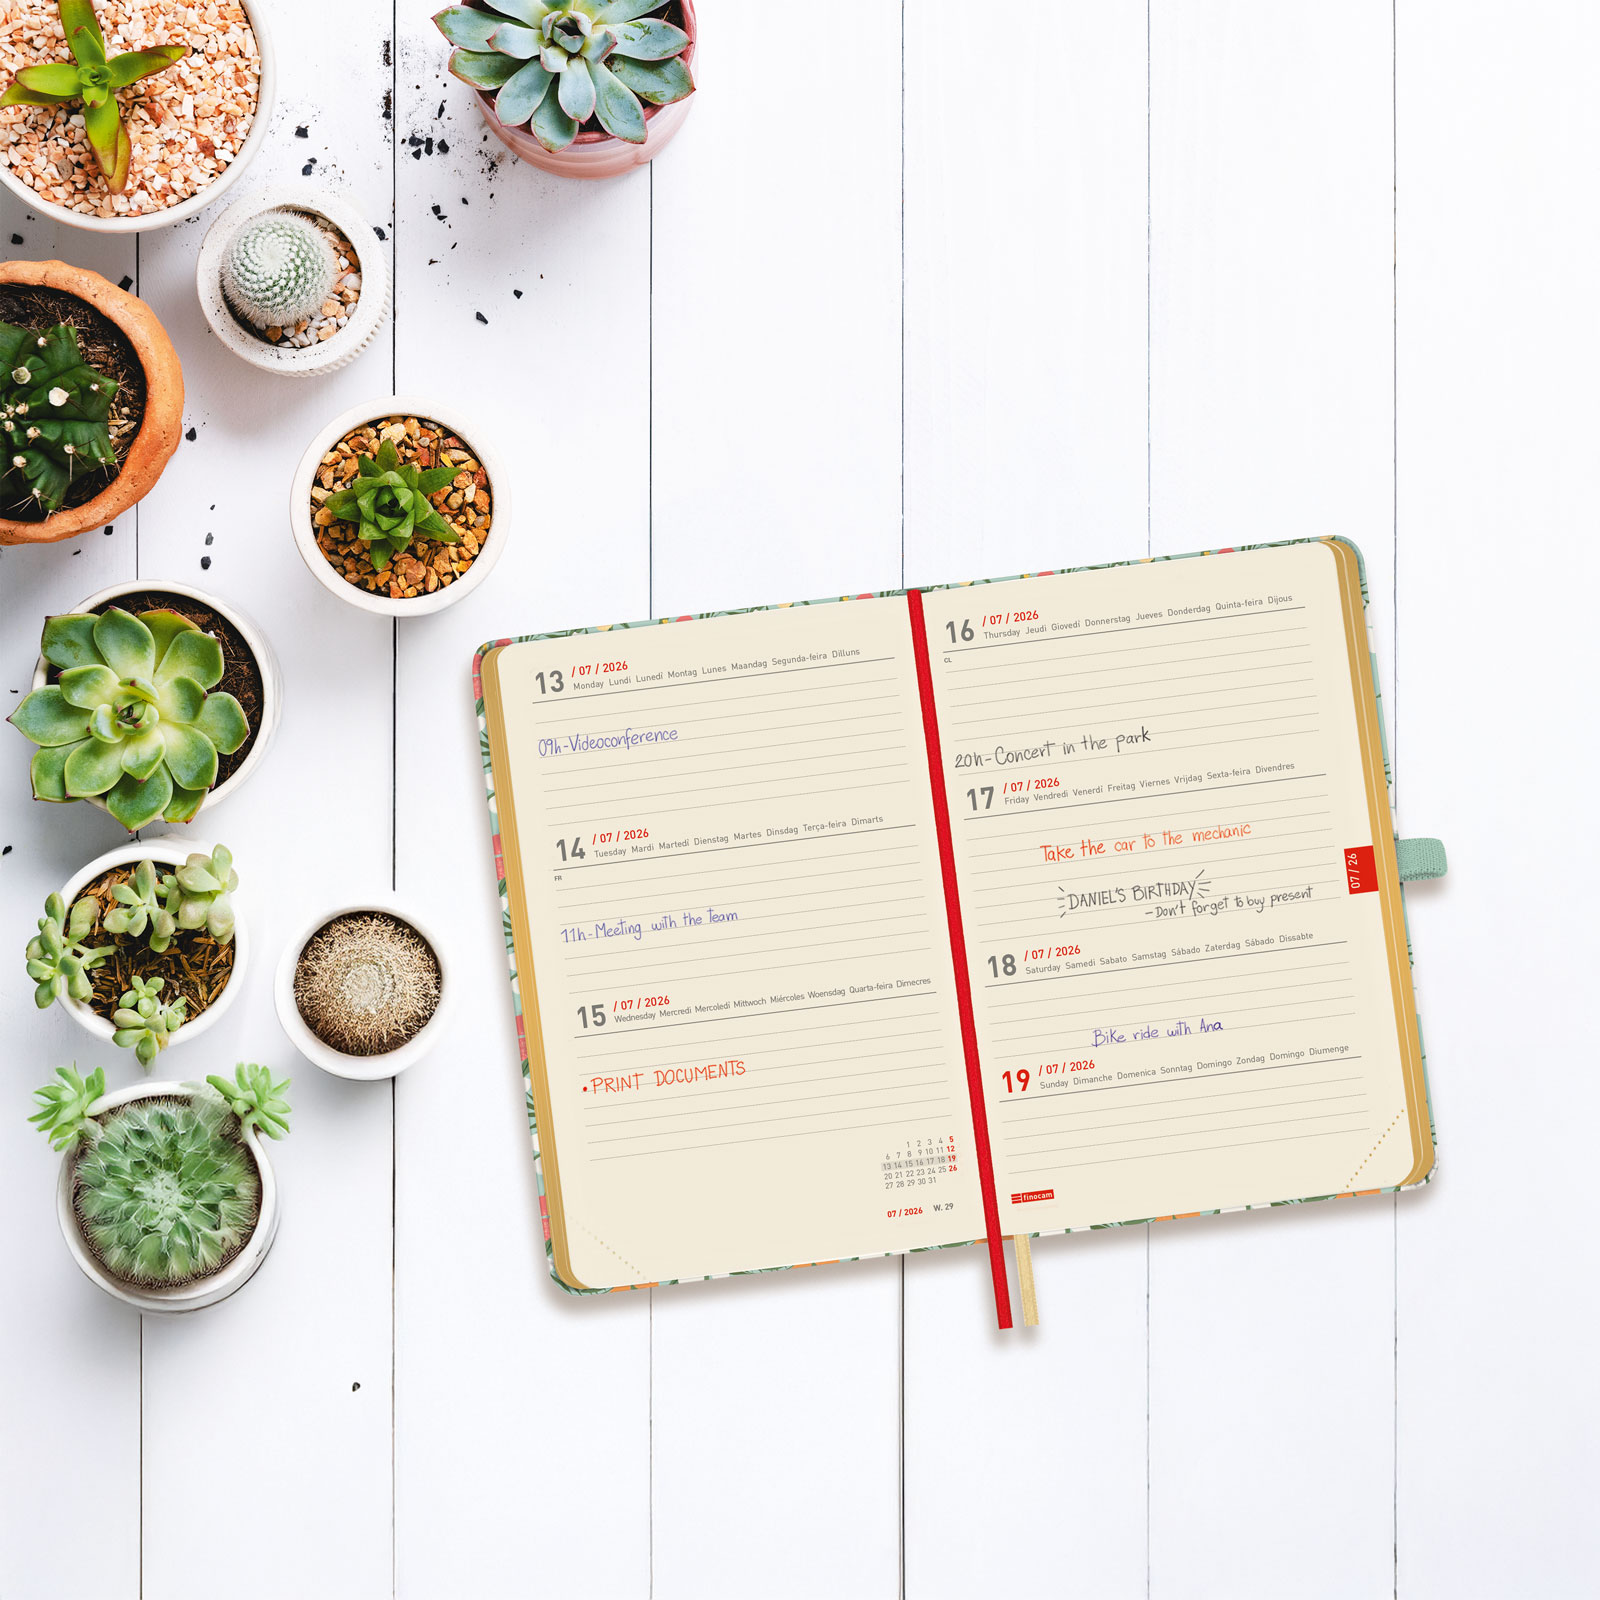 13 / 07 / 2026
Monday Lundi Lunedì Montag Lunes Maandag Segunda-feira Dilluns
09h-Videoconference
14 / 07 / 2026
Tuesday Mardi Martedì Dienstag Martes Dinsdag Terça-feira Dimarts
FR
11h-Meeting with the team
15 / 07 / 2026
Wednesday Mercredi Mercoledì Mittwoch Miércoles Woensdag Quarta-feira Dimecres
• PRINT DOCUMENTS
1 2 3 4 5
6 7 8 9 10 11 12
13 14 15 16 17 18 19
20 21 22 23 24 25 26
27 28 29 30 31
07 / 2026 W. 29
16 / 07 / 2026
Thursday Jeudi Giovedì Donnerstag Jueves Donderdag Quinta-feira Dijous
CL
20h-Concert in the park
17 / 07 / 2026
Friday Vendredi Venerdì Freitag Viernes Vrijdag Sexta-feira Divendres
Take the car to the mechanic
DANIEL'S BIRTHDAY
-Don't forget to buy present
07 / 26
18 / 07 / 2026
Saturday Samedi Sabato Samstag Sábado Zaterdag Sábado Dissabte
Bike ride with Ana
19 / 07 / 2026
Sunday Dimanche Domenica Sonntag Domingo Zondag Domingo Diumenge
finocam